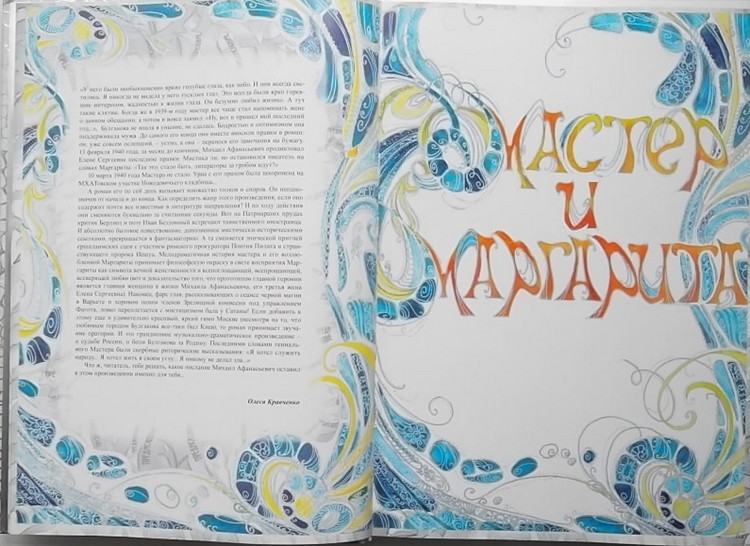 «У него были необыкновенно яркие голубые глаза, как небо. И они всегда све-
тились. Я никогда не видела у него тусклых глаз. Это всегда были ярко горев-
шие интересом, жадностью к жизни глаза. Он безумно любил жизнь». А тут
такие клятвы. Когда же в 1939-м году мастер все чаще стал напоминать жене
о данном обещании, а потом и вовсе заявил: «Ну, вот и пришел мой последний
год...», Булгакова не впала в уныние, не сдалась. Бодростью и оптимизмом она
поддерживала мужа. До самого его конца они вместе вносили правки в роман:
он, уже совсем ослепший, – устно, а она – перенося его замечания на бумагу.
13 февраля 1940 года, за месяц до кончины, Михаил Афанасьевич продиктовал
Елене Сергеевне последние правки. Мистика ли, но остановился писатель на
словах Маргариты: «Так это, стало быть, литераторы за гробом идут?»
10 марта 1940 года Мастера не стало. Урна с его прахом была захоронена на
МХАТовском участке Новодевичьего кладбища...
А роман его по сей день вызывает множество толков и споров. Он неодно-
значен от начала и до конца. Как определить жанр этого произведения, если оно
содержит почти все известные в литературе направления? И по ходу действия
они сменяются буквально за считанные секунды. Вот на Патриарших прудах
критик Берлиоз и поэт Иван Бездомный встречают таинственного иностранца.
И абсолютно бытовое повествование, дополненное мистически-историческими
ссылками, превращается в фантасмагорию. А та сменяется эпической притчей
ершалаимских сцен с участием римского прокуратора Понтия Пилата и стран-
ствующего пророка Иешуа. Мелодраматичная история мастера и его возлю-
бленной Маргариты принимает философскую окраску в свете восприятия Мар-
гариты как символа вечной женственности и всепоглощающей, всепрощающей,
всеверящей любви
Елена Сергеевна). Наконец, фарс глав, рассказывающих о сеансе черной магии
в Варьете и хоровом пении членов Зрелищной комиссии под управлением
Фагота, ловко переплетается с мистицизмом бала у Сатаны! Если добавить к
этому еще и удивительно красивый, яркий гимн Москве (несмотря на то, что
любимым городом Булгакова все-таки был Киев), то роман принимает звуча-
ние оратории. И это грандиозное музыкально-драматическое произведение –
о судьбе России, о боли Булгакова за Родину. Последними словами гениаль-
ного Мастера были скорбные риторические высказывания: «Я хотел служить
народу... Я хотел жить в своем углу... Я никому не делал зла...»
Что ж, читатель, тебе решать, какое послание Михаил Афанасьевич оставил
в этом произведении именно для тебя...
Олеся Кравченко
Мастер
и
Маргарита